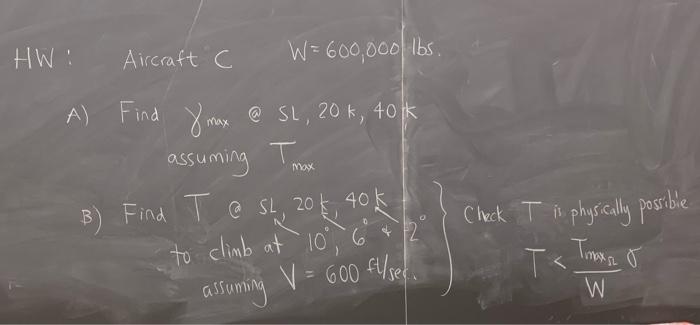 HW: Aircraft C W=600,000 lbs.
A) Find γmax @ SL, 20k, 40k
assuming Tmax
B) Find T @ SL, 20k, 40k
to climb at 10°, 6° & 2°
assuming V = 600 ft/sec.
} Check T is physically possible
T < TmaxSL/W σ